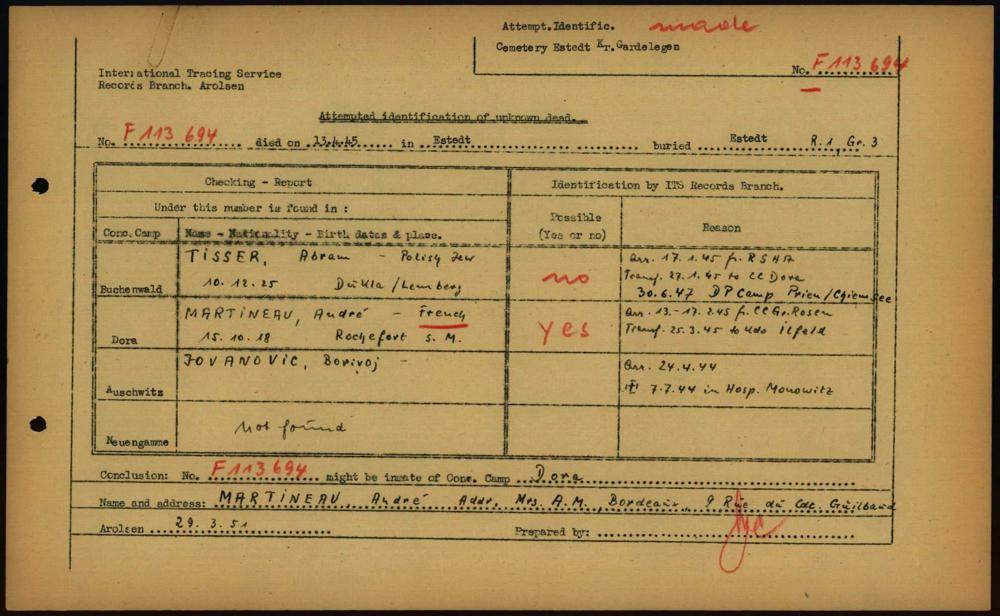 Attempt. Identific. made
Cemetery Estedt Kr. Gardelegen
No. F 113 694
International Tracing Service
Records Branch. Arolsen
Attempted identification of unknown dead.
No. F 113 694 died on 13.4.45 in Estedt buried Estedt R.1, Gr. 3
Checking - Report
Identification by ITS Records Branch.
Under this number is found in :
Conc. Camp
Name - Nationality - Birth dates & place.
Possible
(Yes or no)
Reason
Buchenwald
TISSER, Abram - Polish Jew
10.12.25 Dukla / Lemberg
no
Arr. 17.1.45 fr. RSHA
Transf. 27.1.45 to CC Dora
30.6.47 DP Camp Prien/Chiemsee
Dora
MARTINEAU, André - French
15.10.18 Rochefort s. M.
yes
Arr. 13.-17.2.45 fr. CC Gr. Rosen
Transf. 25.3.45 to Kdo Ilfeld
Auschwitz
JOVANOVIC, Borivoj -
Arr. 24.4.44
7.7.44 in Hosp. Monowitz
Neuengamme
Not found
Conclusion: No. F 113 694 might be inmate of Conc. Camp Dora
Name and address: MARTINEAU, André Addr. Mrs. A.M., Bordeaux, 9 Rue du Cdt.
Arolsen 29. 3. 51 Prepared by: